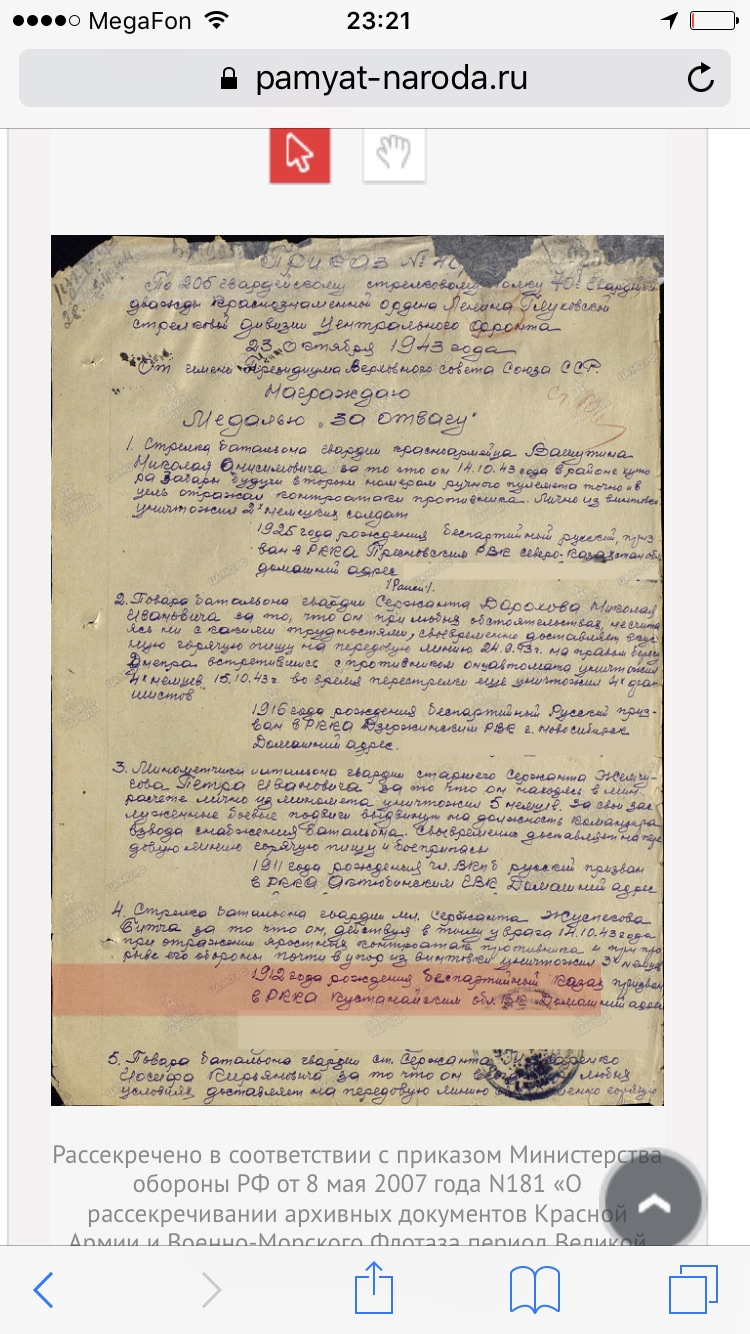 MegaFon 23:21
pamyat-naroda.ru
Приказ №
По 205 гвардейскому стрелковому полку 70й Гвардейской
дважды Краснознаменной ордена Ленина Глуховской
стрелковой дивизии Центрального Фронта
23 Октября 1943 года
От имени Президиума Верховного совета Союза ССР.
Награждаю
Медалью "За отвагу"
1. Стрелка батальона гвардии красноармейца
Николая Анисимовича за то что он 14.10.43 года в районе хуто-
ра будучи вторым номером ручного пулемета точно в
цель отражал контратаки противника. Лично из винтовки
уничтожил 2х немецких солдат
1925 года рождения беспартийный русский, приз-
ван в РККА Пресновским РВК северо-Казахстан обл.
домашний адрес
2. Повара батальона гвардии Сержанта Николая
Ивановича за то, что он при любых обстоятельствах, не счита
ясь ни с какими трудностями, своевременно доставляет вкус-
ную горячую пищу на передовую линию 24.9.43г. на правом берегу
Днепра встретившись с противником он из автомата уничтожил
4х немцев 15.10.43г. во время перестрелки еще уничтожил 4х фа-
шистов
1916 года рождения беспартийный Русский приз-
ван в РККА Дзержинским РВК г. Новосибирск
Домашний адрес.
3. Минометчика батальона гвардии старшего Сержанта
Петра Ивановича за то что он находясь в мин.
расчете лично из миномета уничтожил 5 немцев. За свои зас-
луженные боевые подвиги выдвинут на должность командира
взвода снабжения батальона. Своевременно доставляет на пере
довую линию горячую пищу и боеприпасы
1911 года рождения чл. ВКПб русский призван
в РККА Актюбинским ГВК Домашний адрес
4. Стрелка батальона гвардии мл. Сержанта
за то что он, действуя в тылу у врага 14.10.43 года
при отражении яростных контратак противника и при про
рыве его обороны почти в упор из винтовки уничтожил 3х немцев
1912 года рождения беспартийный казах призван
в РККА Кустанайским обл. ВК Домашний адрес
5. Повара батальона гвардии ст. Сержанта
Иосифа за то что он любых
условиях доставляет на передовую линию горячую
Рассекречено в соответствии с приказом Министерства
обороны РФ от 8 мая 2007 года N181 «О
рассекречивании архивных документов Красной
Армии и Военно-Морского Флотаза период Великой